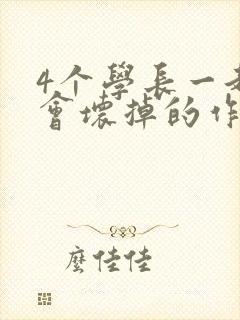 4个學長一起
會壞掉的作
麼佳佳